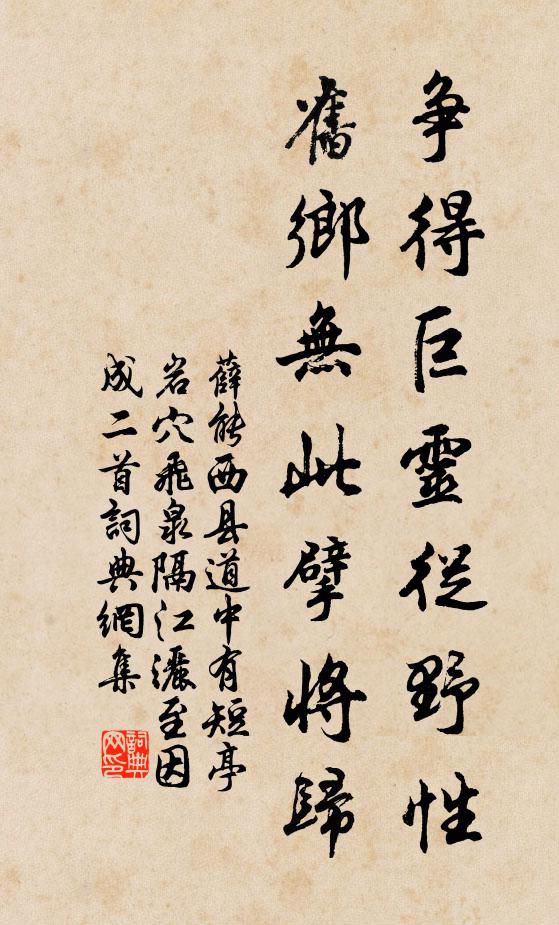 争得巨靈従野性
舊鄉無此擘將歸
薛能西县道中有短亭
岩穴飛泉隔江灑至因
成二首詞典網集
詞典
网印